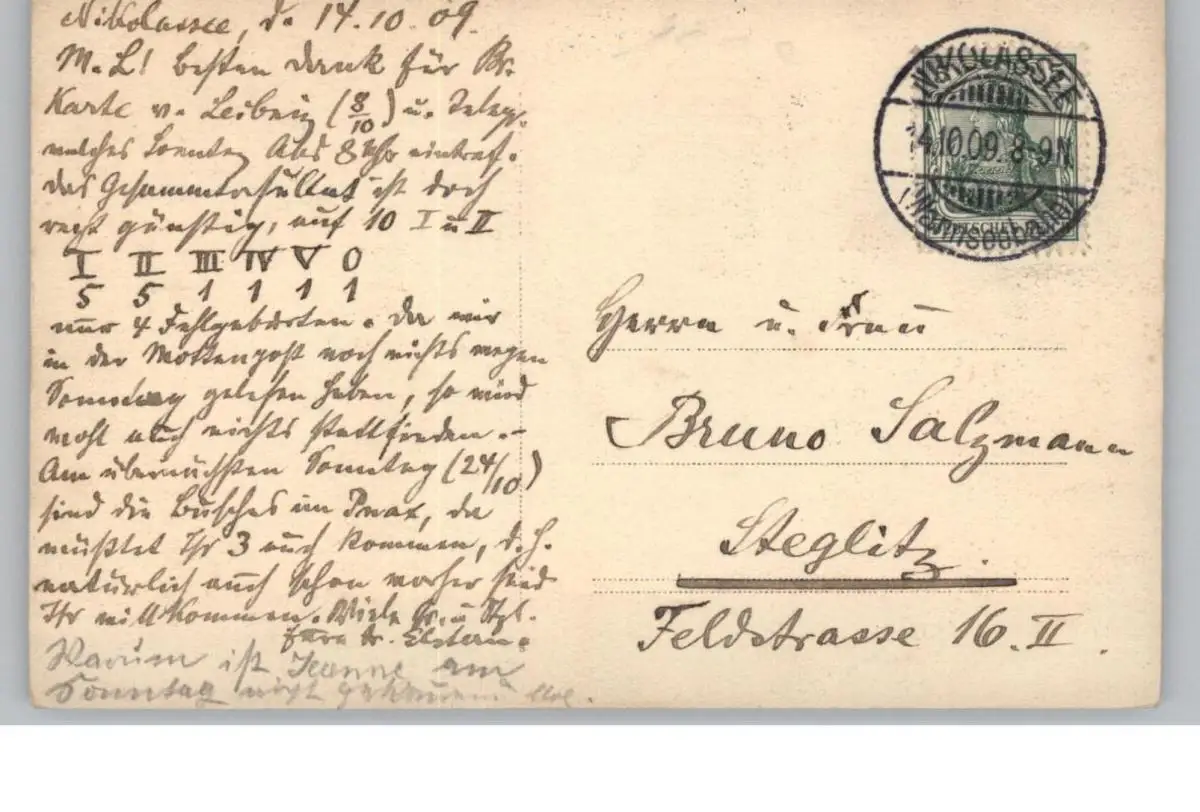 Nikolassee, d. 14.10.09.
M. L! besten Dank für Br.
Karte v. Leibnig (8/10) u. Telegr.
welches Sonntag Abd 8 Uhr eintraf.
das Gesammtresultat ist doch
recht günstig, auf 10 I u II
I II III IV V 0
5 5 1 1 1 1
nur 4 Fehlgeburten. Da wir
in der Mottenpost noch nichts wegen
Sonntag gelesen haben, so wird
wohl auch nichts stattfinden.-
Am übernächsten Sonntag (24/10)
sind die Busches im, da
müßtet Ihr 3 auch kommen, d. h.
natürlich auch schon vorher seid
Ihr willkommen. Viele Gr. u
Eure tr. Eltern.
Warum ist Jeanne am
Sonntag nicht gekommen?
NIKOLASSEE
14.10.09. 8-9N.
(Wannseebahn)
Herrn u. Frau
Bruno Salzmann
Steglitz.
Feldstrasse 16. II.